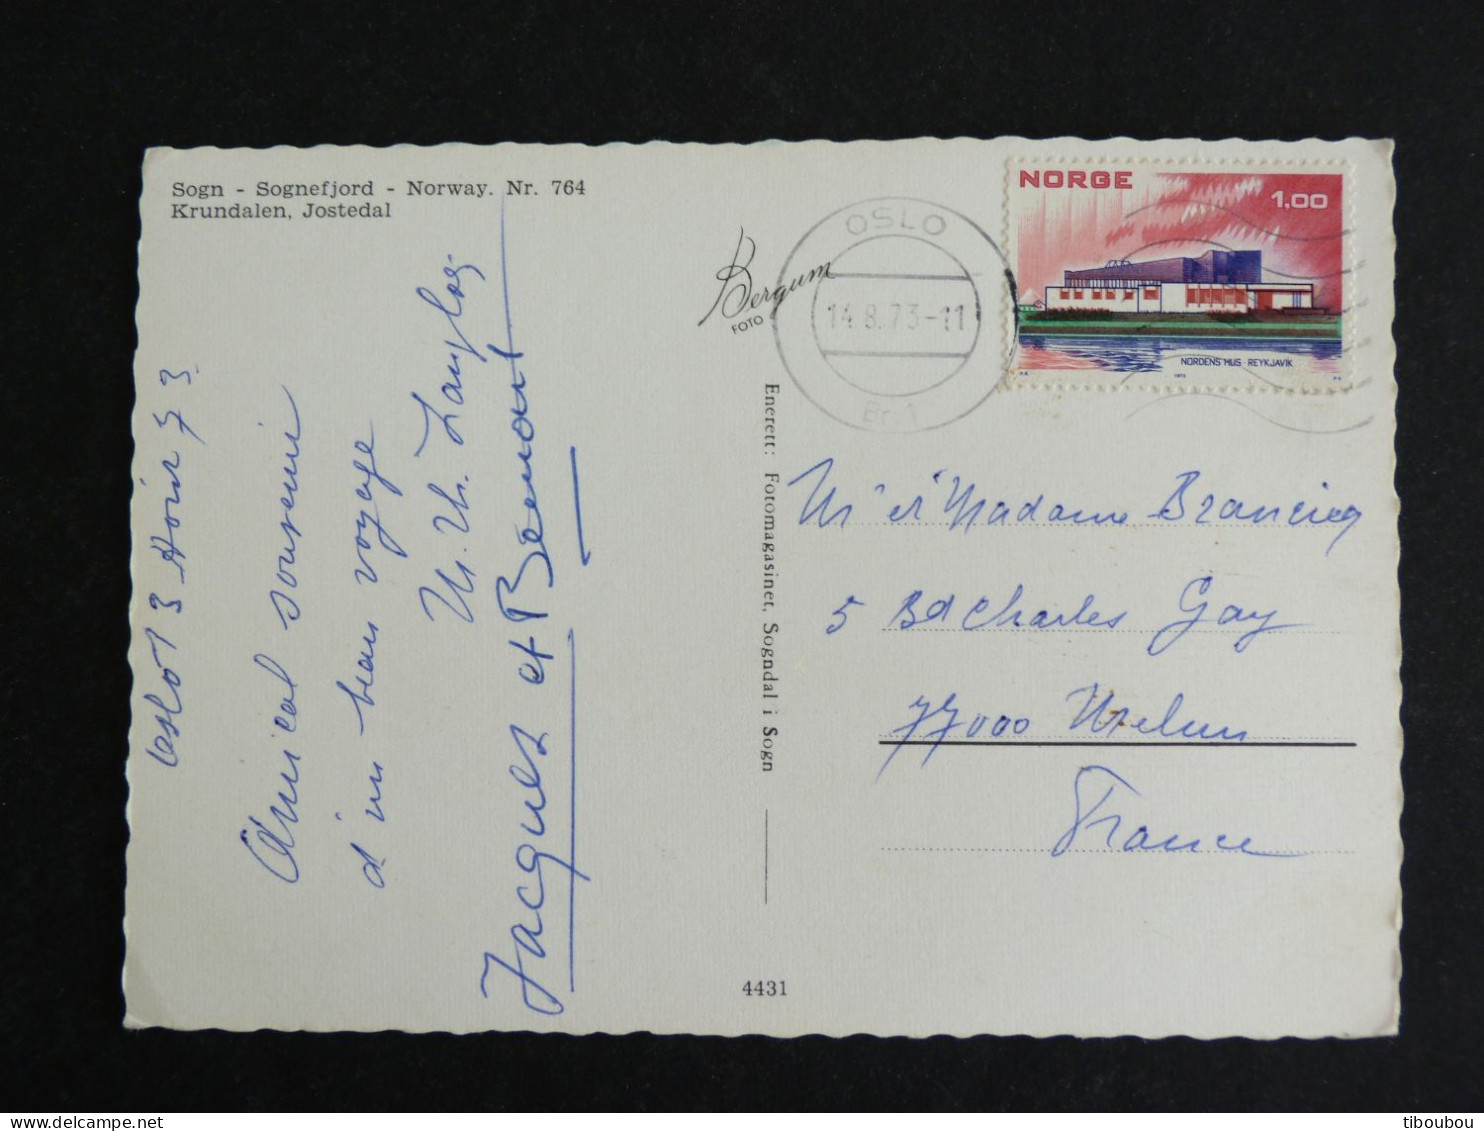 Sogn - Sognefjord - Norway. Nr. 764
Krundalen, Jostedal
3 Août 73
Amical souvenir
d'un beau voyage
Jacques et
Bergum
FOTO
Enerett: Fotomagasinet, Sogndal i Sogn
4431
OSLO
14.8.73-11
Br. 1
NORGE
1,00
NORDENS HUS · REYKJAVIK
1973
Mr et Madame
5 Bd Charles Gay
77000 Melun
France
tiboubou